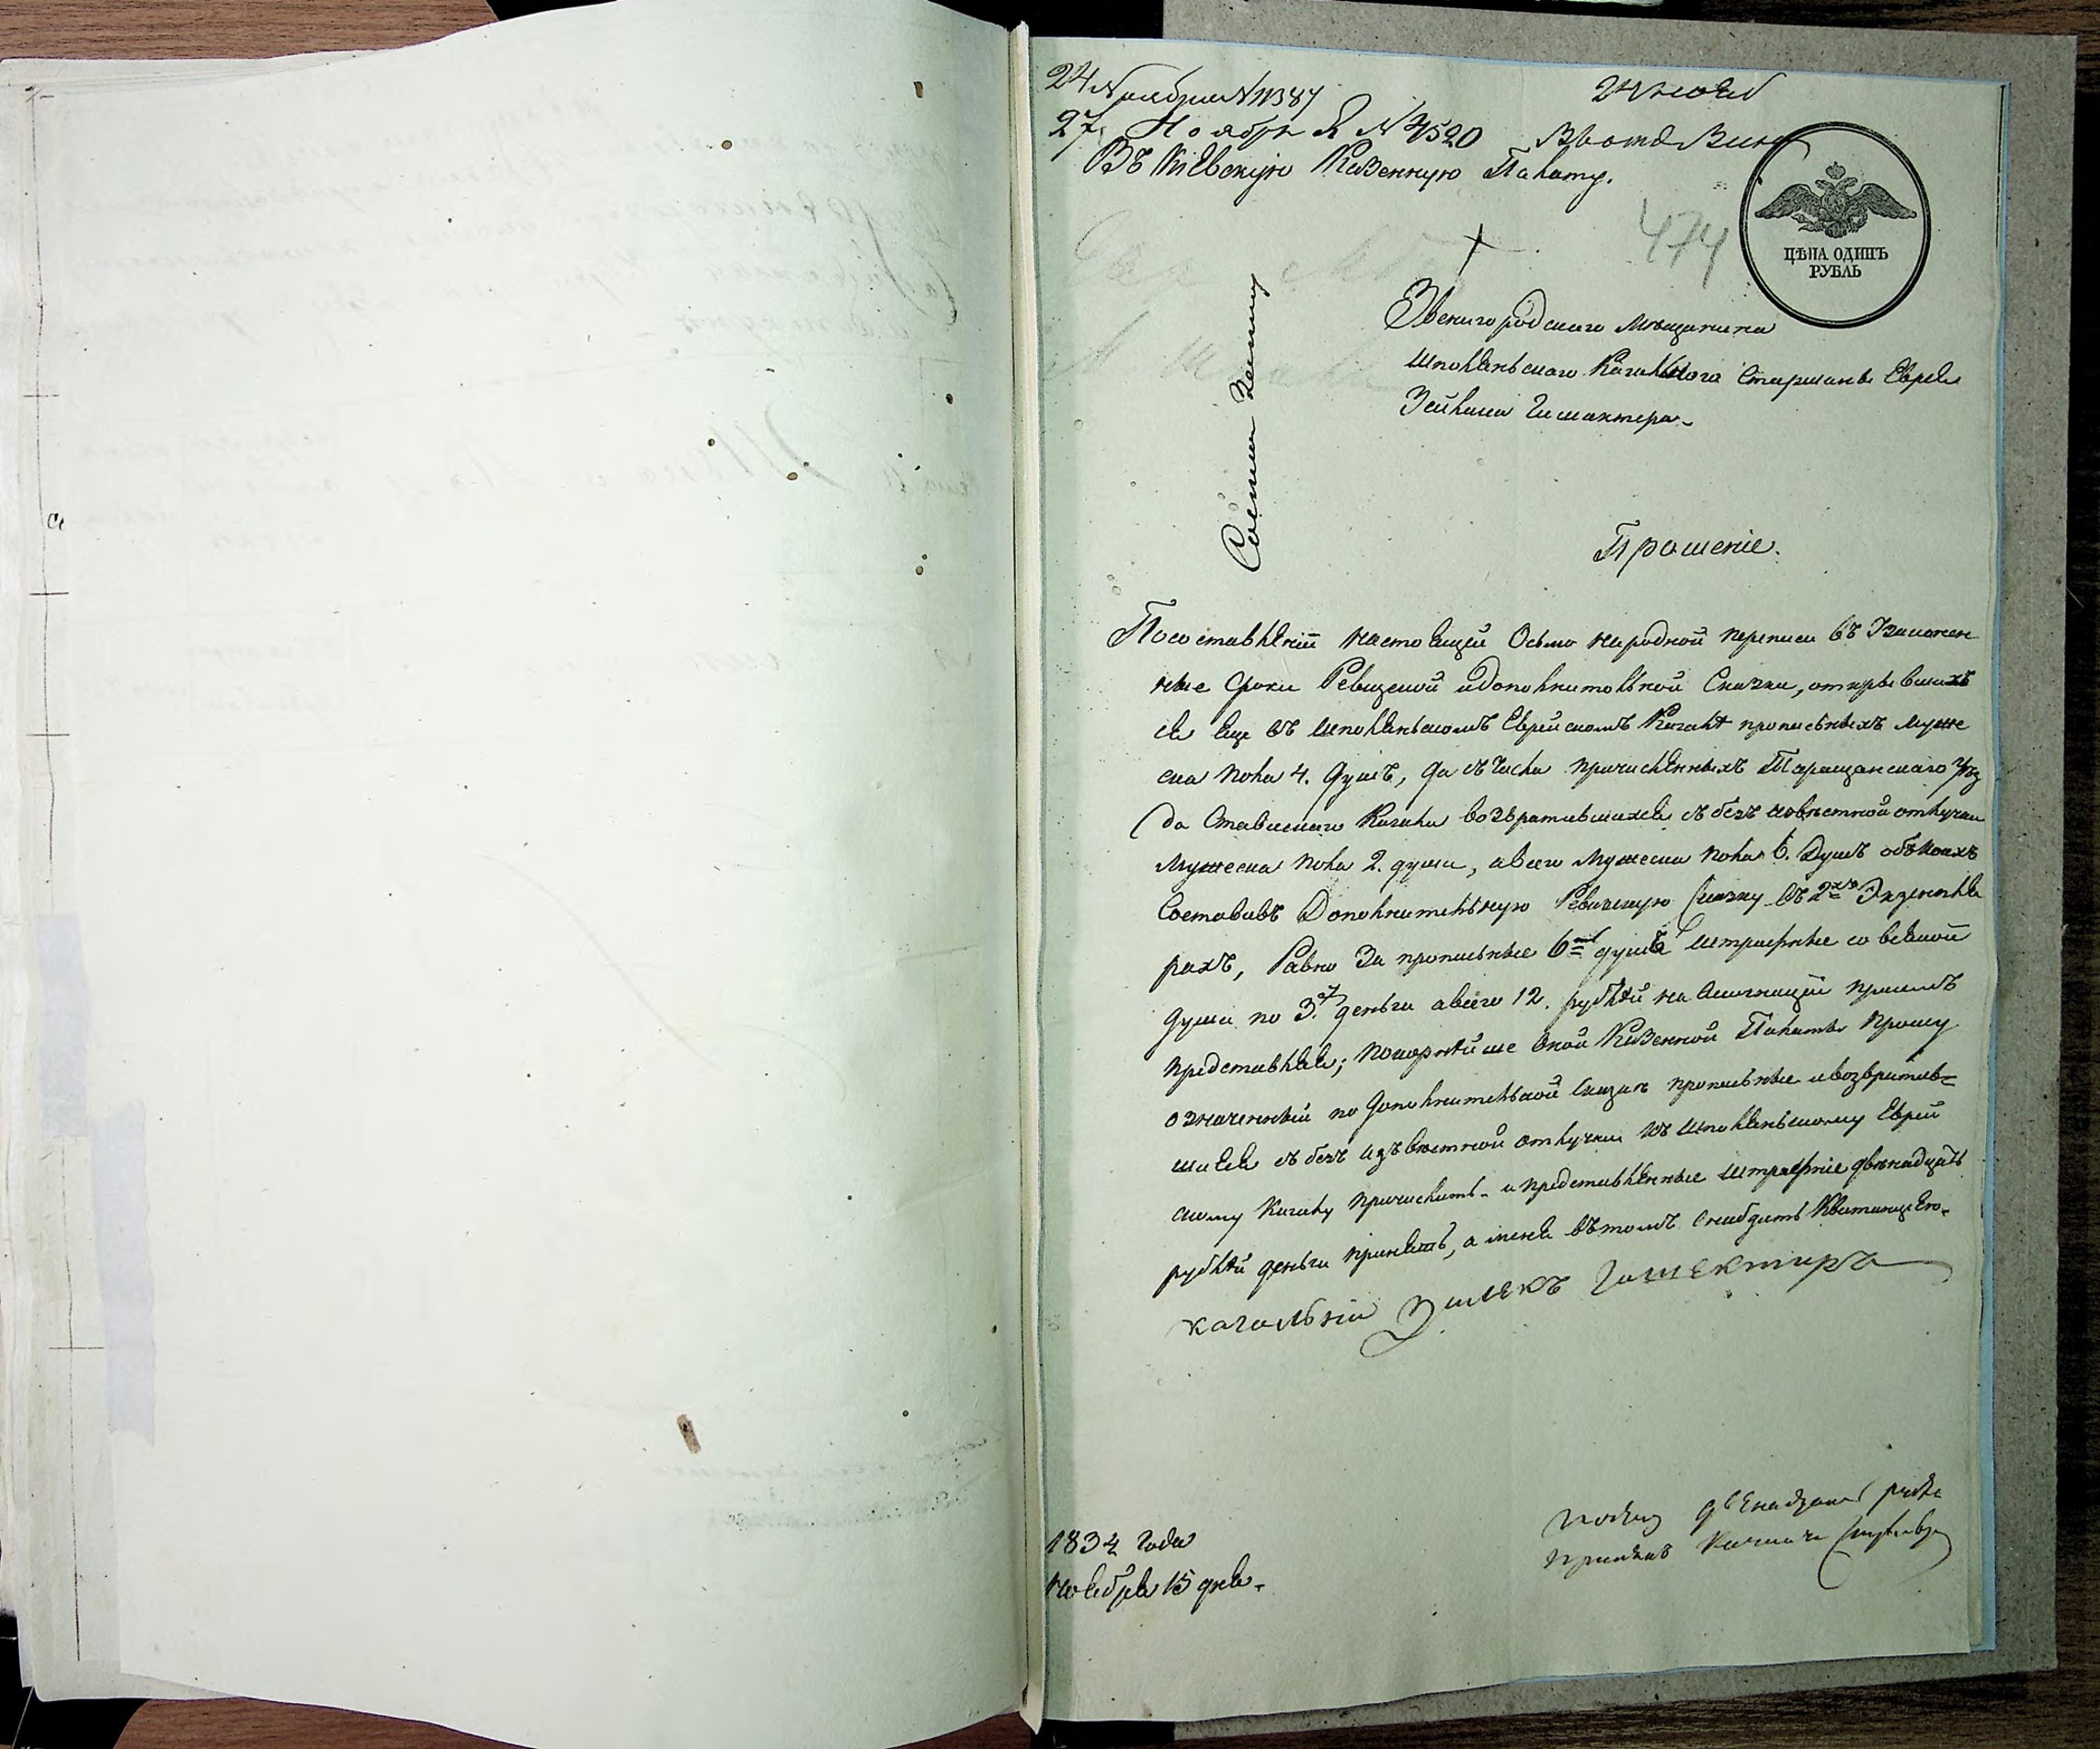 24 Ноября N 11384
27, Ноября N 4520
24 нояб
Въ Кіевскую Казенную Палату.
474
ЦѢНА ОДИНЪ
РУБЛЬ
Звенигородскаго Мѣщанина
Шполянскаго Кагального Старшаны Еврея
Зейлика Гишиктера
Прошеніе.
По составленіи настоящей Осьмо народной переписи въ Узаконен
ные Сроки Ревизской и дополнительной Сказки, открывшихъ
ся еще въ Шполянскомъ Еврейскомъ Кагалѣ прописныхъ муже
ска пола 4. душъ, да съ числа причисленныхъ Таращанскаго Уѣз
да Ставискаго Кагала возвратившихся съ безъ извѣстной отлучки
Мужеска пола 2. души, а всего Мужеска пола 6. Душъ обѣ коихъ
Составивъ Дополнительную Ревизскую Сказку въ 2хъ Экземпля
рахъ, Равно За прописные 6ть душъ штрафные со всякой
души по 3. деньги а всего 12. рублей на Ассигнаціи присемъ
представляя; покорнѣйше оной Казенной Палаты прошу
означенный по дополнительной сказки прописные и возвратив=
шиеся съ безъ извѣстной отлучки къ Шполянскому Еврей
скому Кагалу причислить и представленные штрафніе двѣнадцать
рублей деньги принять, а меня вътомъ снабдить Квитанціею
кагальній Зилекъ Гашектиръ
двенадцать
1834 года
Ноября 15 дня